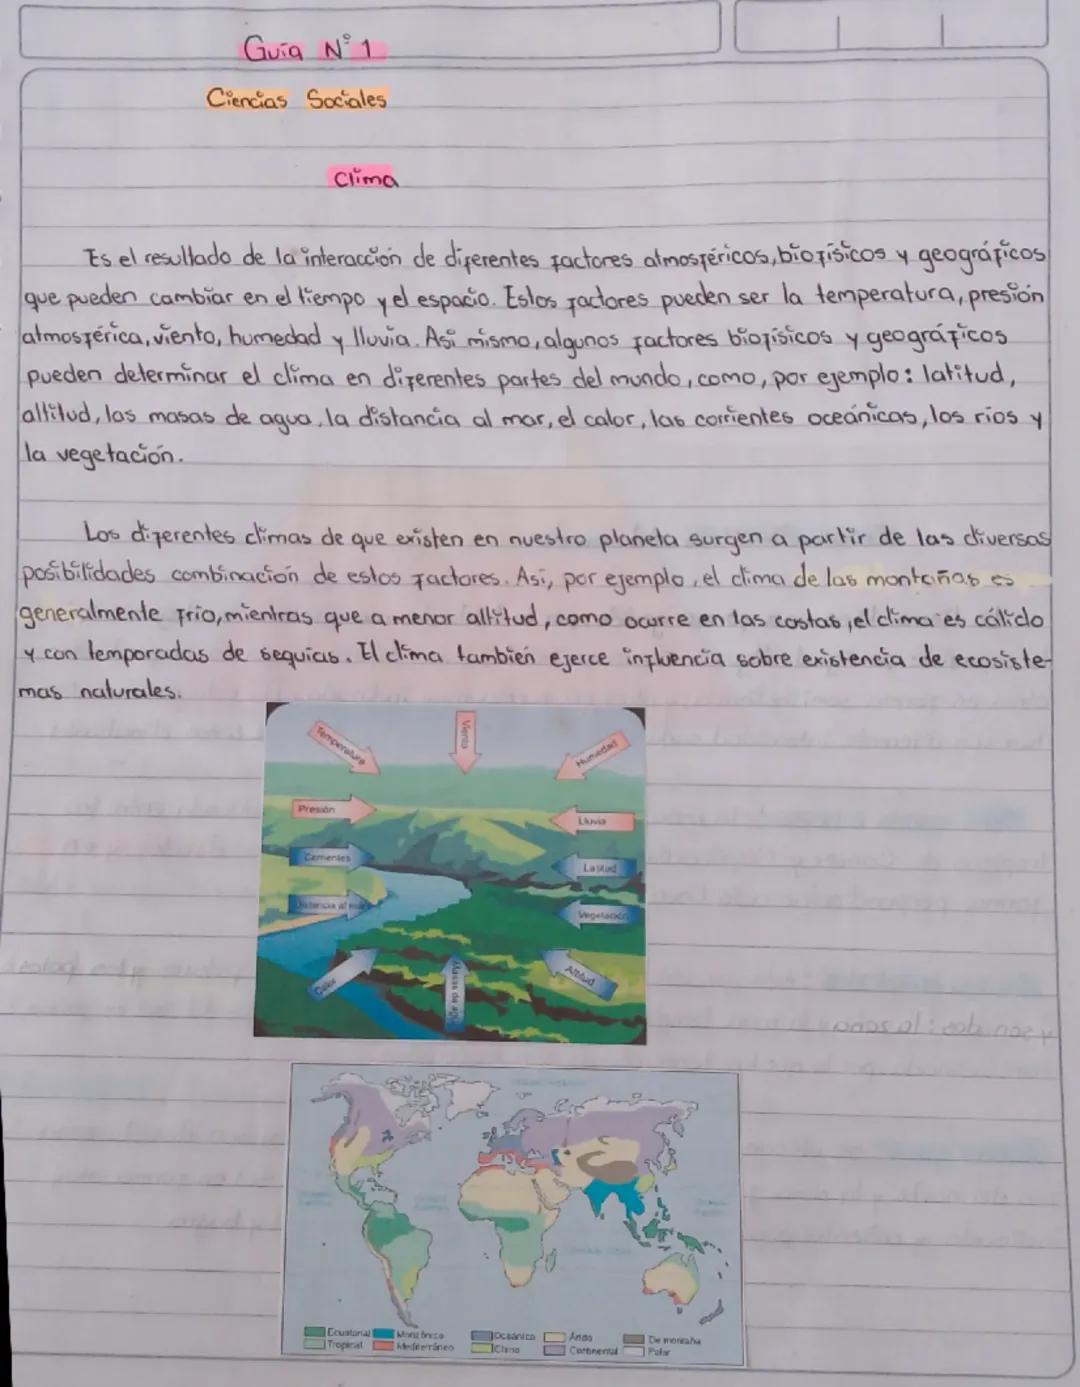 Guía N° 1
Ciencias Sociales
Clima
Es el resultado de la interacción de diferentes factores atmosféricos, biofísicos y geográficos
que pueden cambiar en el tiempo y el espacio. Estos factores pueden ser la temperatura, presión
atmosférica, viento, humedad y lluvia. Así mismo, algunos factores biofísicos y geográficos
pueden determinar el clima en diferentes partes del mundo, como, por ejemplo: latitud,
altitud, las masas de agua, la distancia al mar, el calor, las corrientes oceánicas, los ríos y
la vegetación.
Los diferentes climas de que existen en nuestro planeta surgen a partir de las diversas
posibilidades combinación de estos factores. Así, por ejemplo, el clima de las montañas es
generalmente frío, mientras que a menor altitud, como ocurre en las costas, el clima es cálido
y con temporadas de sequias. El clima también ejerce influencia sobre existencia de ecosiste-
mas naturales.
Temperatura
Viento
Humedad
Presión
Lluvia
Corrientes
Latitud
Distancia al mar
Vegetación
Calor
Masas de agua
Altitud
Ecuatorial
Monzónico
Oceánico
Árido
De montaña
Tropical
Mediterráneo
Chino
Continental
Polar